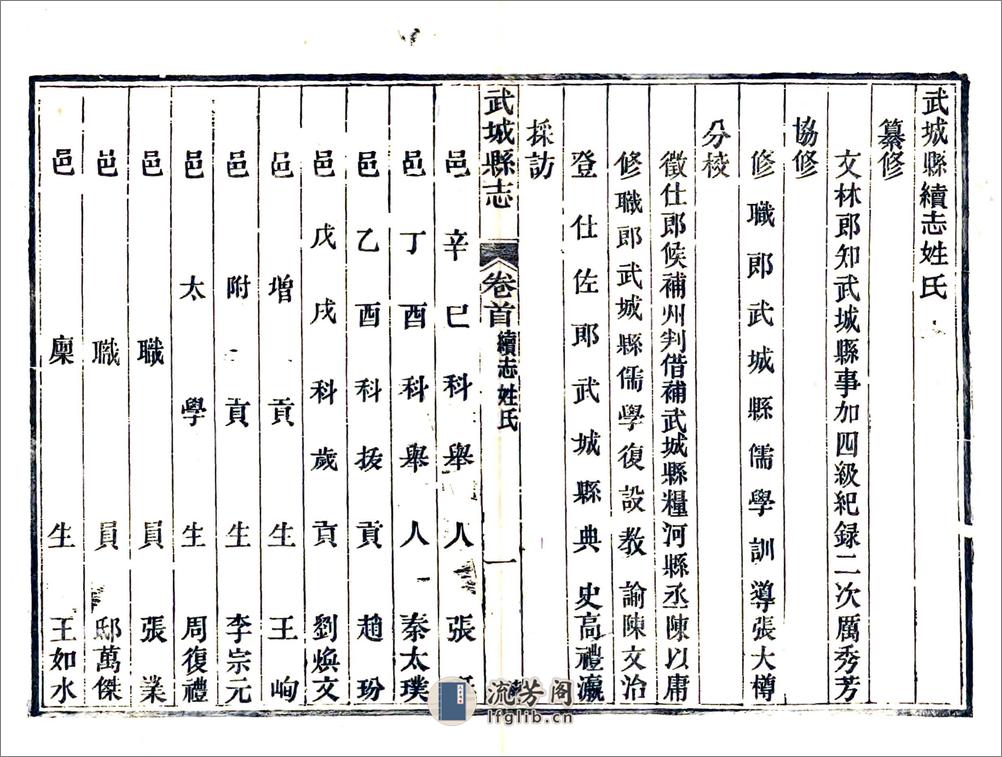 武城縣續志姓氏
纂修
文林郎知武城縣事加四級紀録二次厲秀芳
協修
修職郎武城縣儒學訓導張大樽
分校
徵仕郎候補州判借補武城縣糧河縣丞陳以庸
修職郎武城縣儒學復設教諭陳文治
登仕佐郎武城縣典史高禮瀛
採訪
武城縣志 卷首 續志姓氏 一
邑辛巳科舉人張
邑丁酉科舉人秦太璞
邑乙酉科拔貢趙玢
邑戊戌科歲貢劉煥文
邑增貢生王峋
邑附貢生李宗元
邑太學生周復禮
邑職員張業
邑職員邸萬傑
邑廩生王如水
流芳阁
lfglib.cn